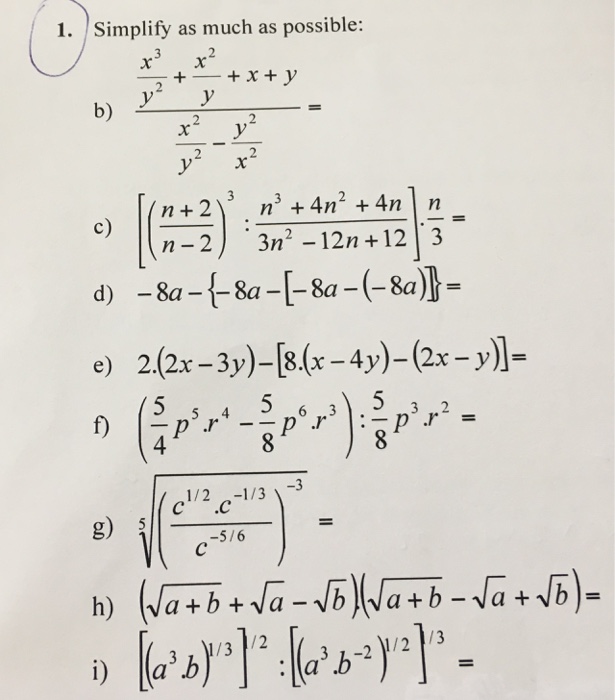 1. Simplify as much as possible:
b) \frac{\frac{x^3}{y^2} + \frac{x^2}{y} + x + y}{\frac{x^2}{y^2} - \frac{y^2}{x^2}} =
c) \left[\left(\frac{n+2}{n-2}\right)^3 : \frac{n^3 + 4n^2 + 4n}{3n^2 - 12n + 12}\right] . \frac{n}{3} =
d) -8a - {-8a - [-8a - (-8a)]} =
e) 2.(2x - 3y) - [8.(x - 4y) - (2x - y)] =
f) \left(\frac{5}{4} p^5 . r^4 - \frac{5}{8} p^6 . r^3\right) : \frac{5}{8} p^3 . r^2 =
g) \sqrt[5]{\left(\frac{c^{1/2} . c^{-1/3}}{c^{-5/6}}\right)^{-3}} =
h) (\sqrt{a+b} + \sqrt{a} - \sqrt{b})(\sqrt{a+b} - \sqrt{a} + \sqrt{b}) =
i) [(a^3 . b)^{1/3}]^{1/2} : [(a^3 . b^{-2})^{1/2}]^{1/3} =